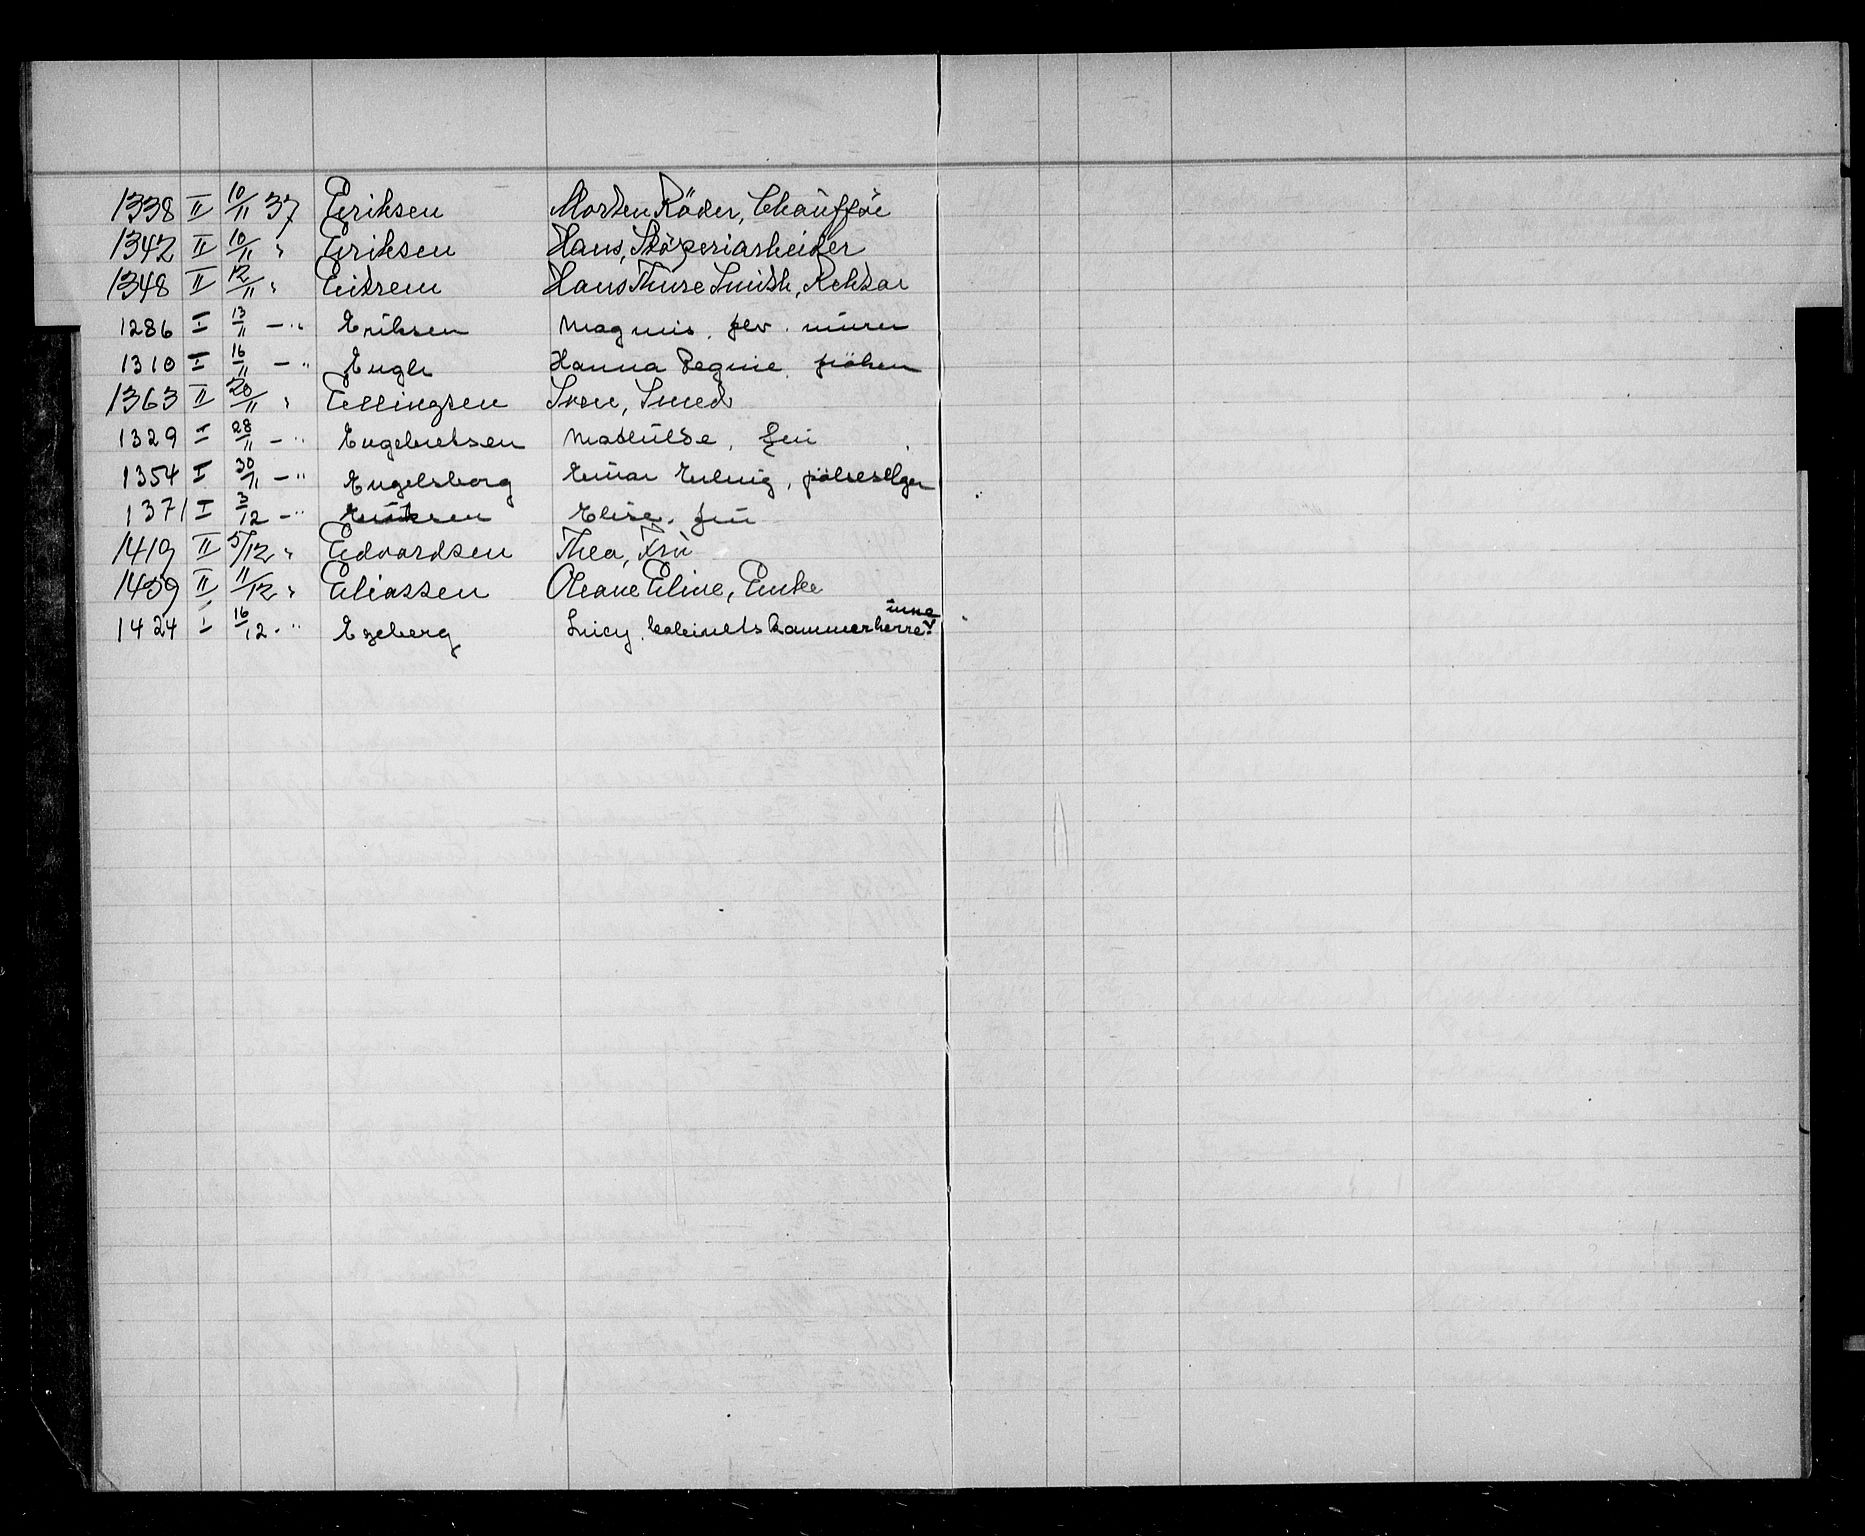 1338 II 10/11 37 Eriksen Morten Röder, Chauffør
1342 II 10/11 " Eriksen Hans, Støperiarbeider
1348 II 12/11 " Eitrem Hans Thure Smith, Rektor
1286 I 13/11 - " Eriksen Magnus, fhv. murer
1310 I 16/11 - " Engh Hanna Regine, frøken
1363 II 20/11 " Ellingsen Sven, Smed
1329 I 28/11 - " Engebretsen Mathilde, fru
1354 I 30/11 - " Engelsborg Einar Erling, pølseselger
1371 I 3/12 - " Eriksen Elise, fru
1419 II 5/12 " Edvardsen Thea, Fru
1459 II 11/12 " Eliassen Oleane Eline, Enke
1424 I 16/12 - " Egeberg Lucy, kabinetskammerherreinne